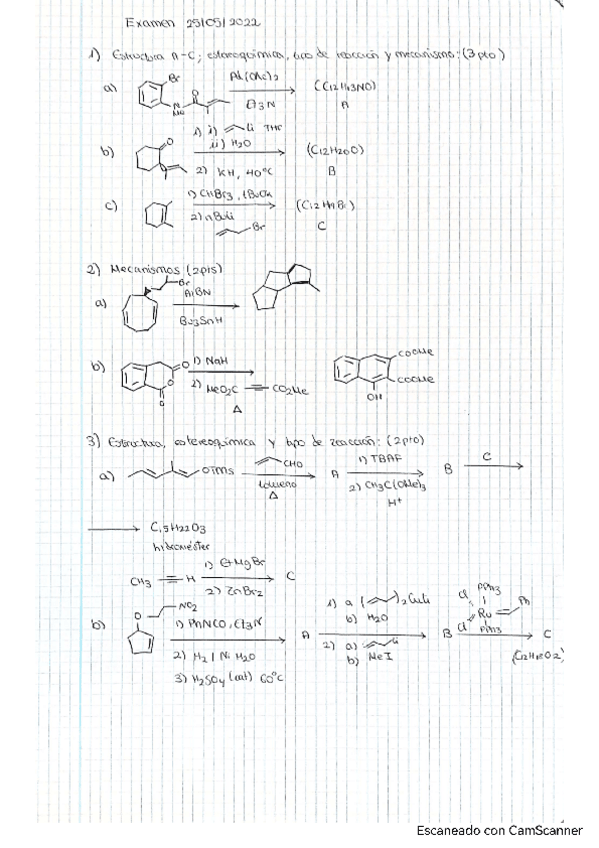 Examen 25/05/2022
1) Estructura A-C; estereoquímica, tipo de reacción y mecanismo: (3 pto)
a) Br N Me O Pd(OAc)2 Et3N (C12H13NO) A
b) O 1) i) Li THF ii) H2O 2) KH, 40°C (C12H20O) B
c) 1) CHBr3, tBuOK 2) nBuLi Br (C12H Br) C
2) Mecanismos (2pts)
a) Br AIBN Bu3SnH
b) O O O 1) NaH 2) MeO2C CO2Me Δ COOMe COOMe OH
3) Estructura, estereoquímica y tipo de reacción: (2pto)
a) OTMS CHO tolueno Δ A 1) TBAF 2) CH3C(OMe)3 H+ B C
C15H22O3
CH3 H 1) EtMgBr 2) ZnBr2 C
b) O NO2 1) PhNCO, Et3N 2) H2 / Ni H2O 3) H2SO4 (cat) 60°C A 1) a ( )2CuLi b) H2O 2) a) Li b) MeI B Cl PPh3 Ru Ph Cl PPh3 C
Escaneado con CamScanner